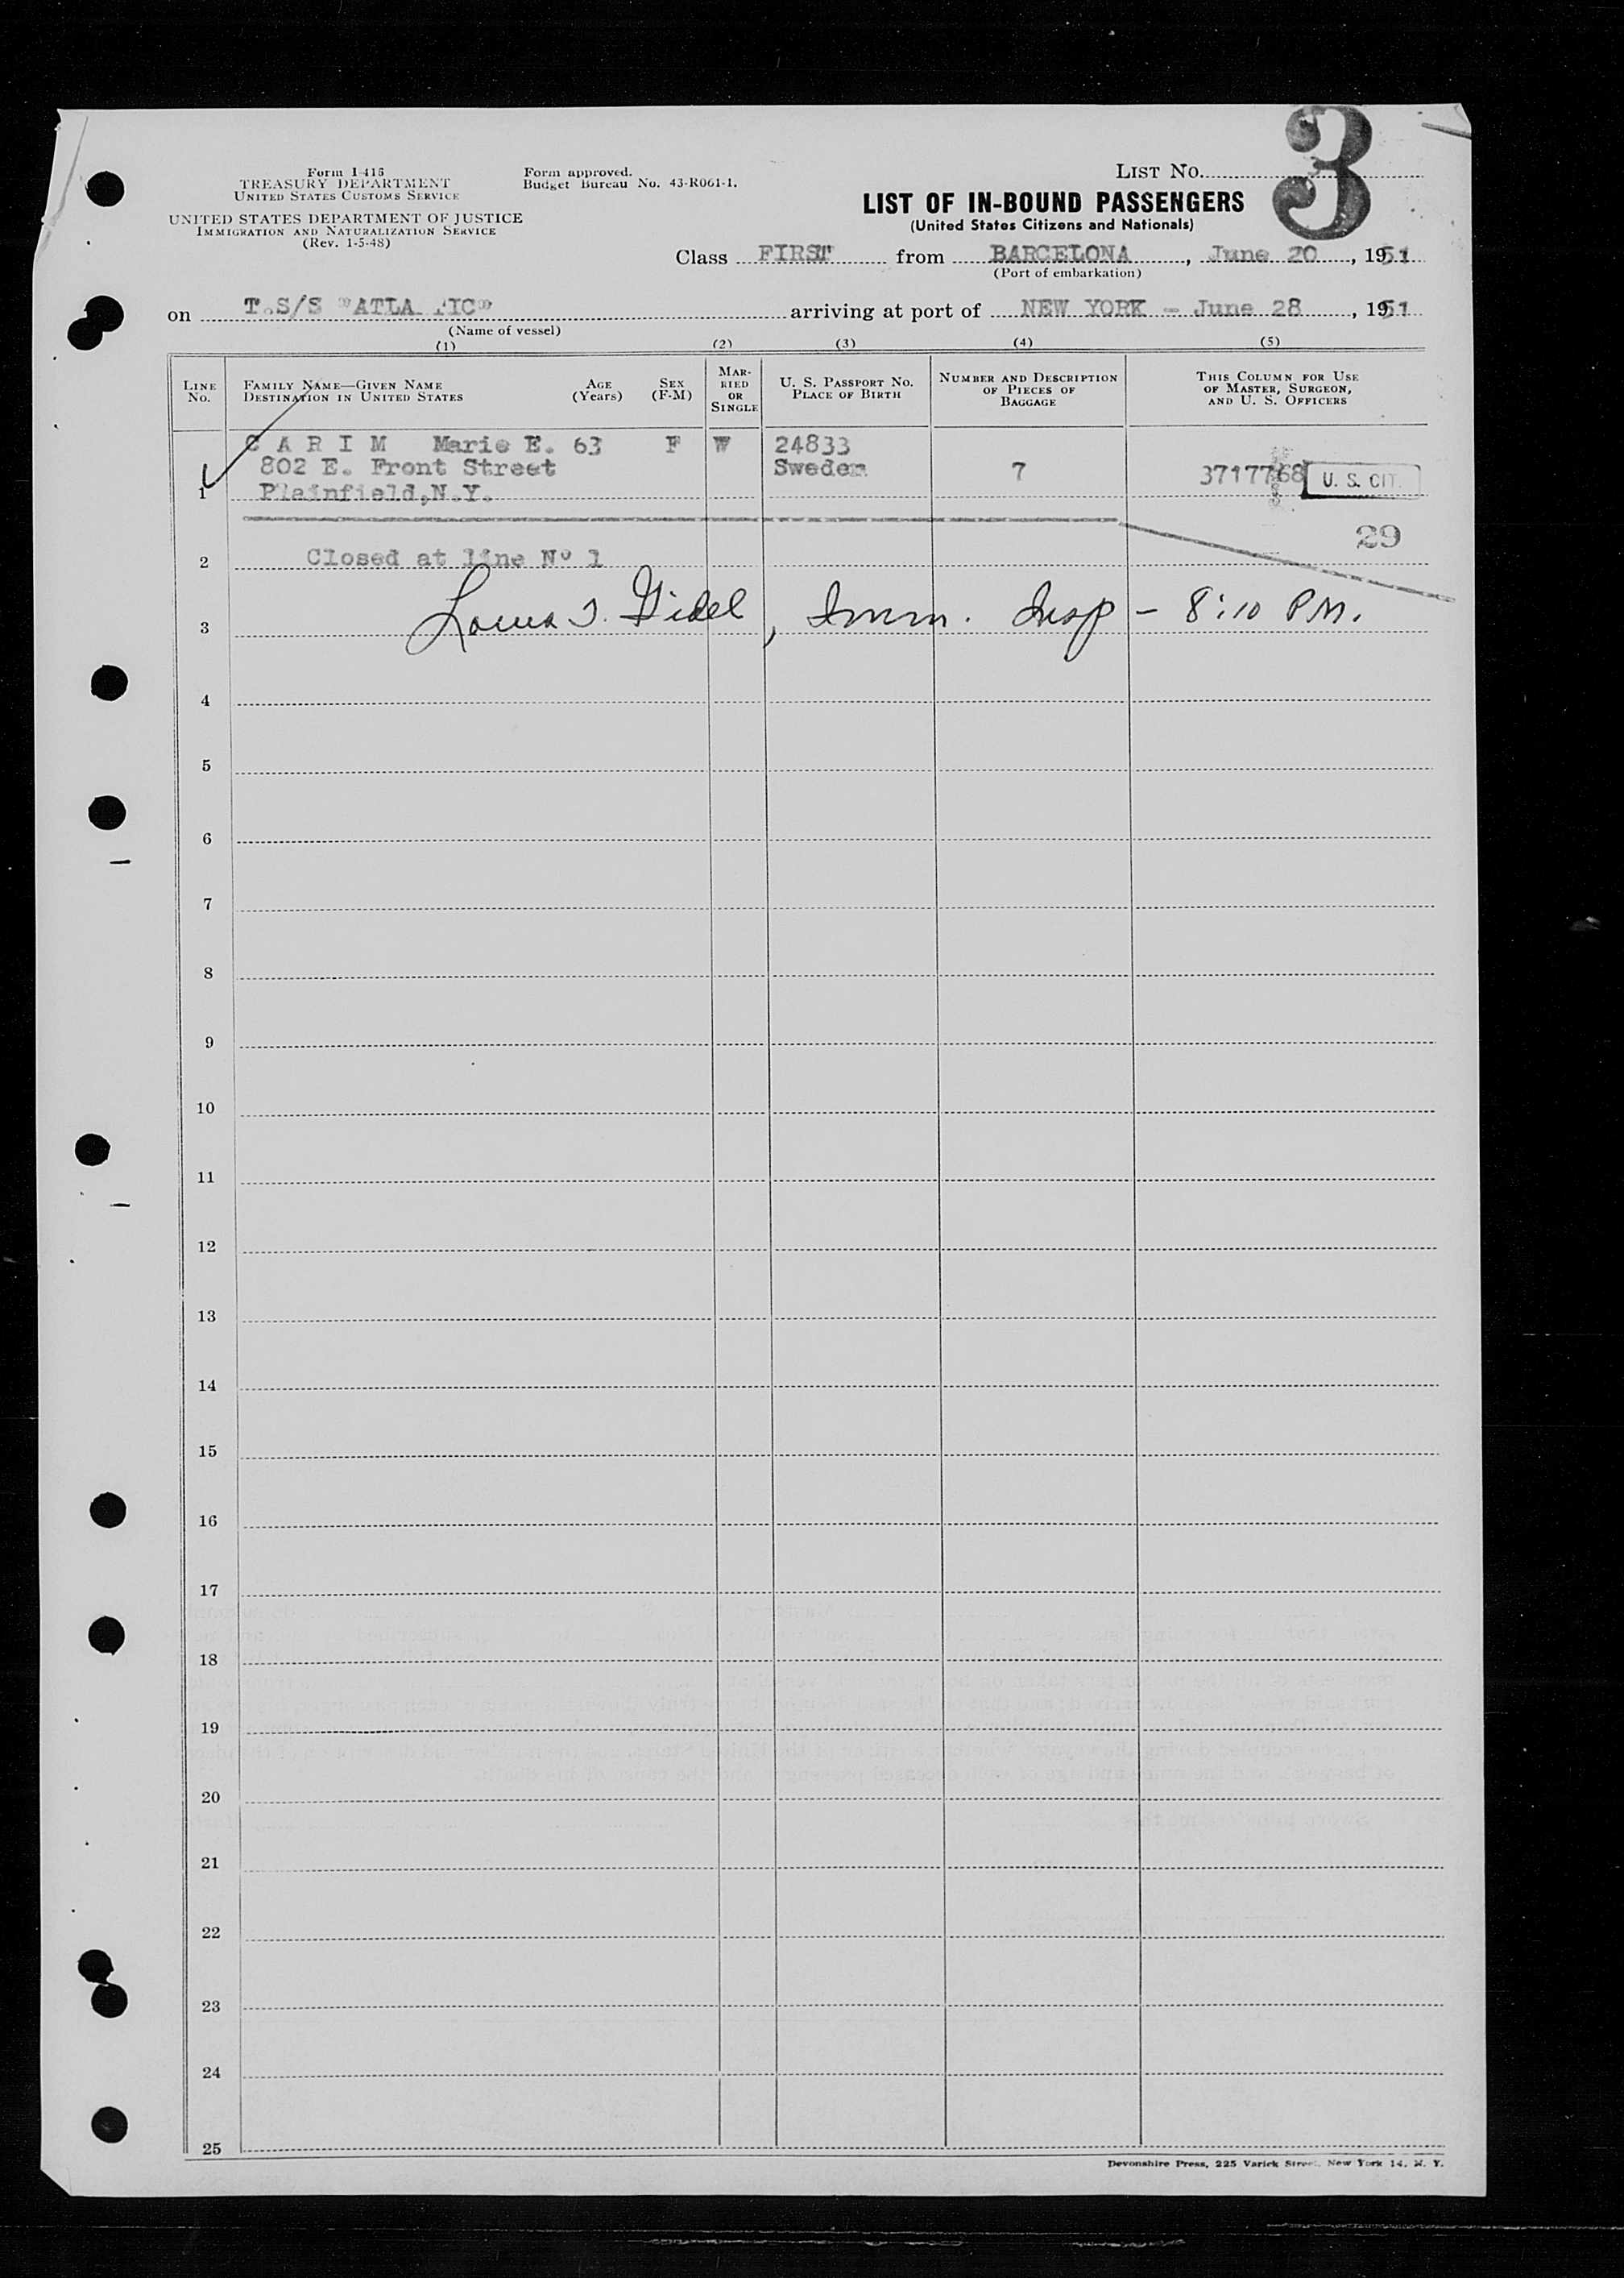 3
Form I-415
TREASURY DEPARTMENT
UNITED STATES CUSTOMS SERVICE
UNITED STATES DEPARTMENT OF JUSTICE
IMMIGRATION AND NATURALIZATION SERVICE
(Rev. 1-5-48)
Form approved.
Budget Bureau No. 43-R061-1.
LIST NO.
LIST OF IN-BOUND PASSENGERS
(United States Citizens and Nationals)
Class FIRST from BARCELONA, June 20, 1951
(Port of embarkation)
on T.S/S "ATLA TIC" arriving at port of NEW YORK - June 28, 1951
(Name of vessel)
(1) (2) (3) (4) (5)
LINE NO.
FAMILY NAME—GIVEN NAME
DESTINATION IN UNITED STATES
AGE (Years)
SEX (F-M)
MARRIED OR SINGLE
U. S. PASSPORT NO.
PLACE OF BIRTH
NUMBER AND DESCRIPTION
OF PIECES OF
BAGGAGE
THIS COLUMN FOR USE
OF MASTER, SURGEON,
AND U. S. OFFICERS
C A R I M Marie E. 63 F W 24833
802 E. Front Street Sweden 7 3717768 U. S. CIT.
1 Plainfield, N.Y.
29
2 Closed at line Nº 1
3 Gidel, Imm. Insp - 8:10 PM.
4
5
6
7
8
9
10
11
12
13
14
15
16
17
18
19
20
21
22
23
24
25
Devonshire Press, 225 Varick Street, New York 14, N. Y.